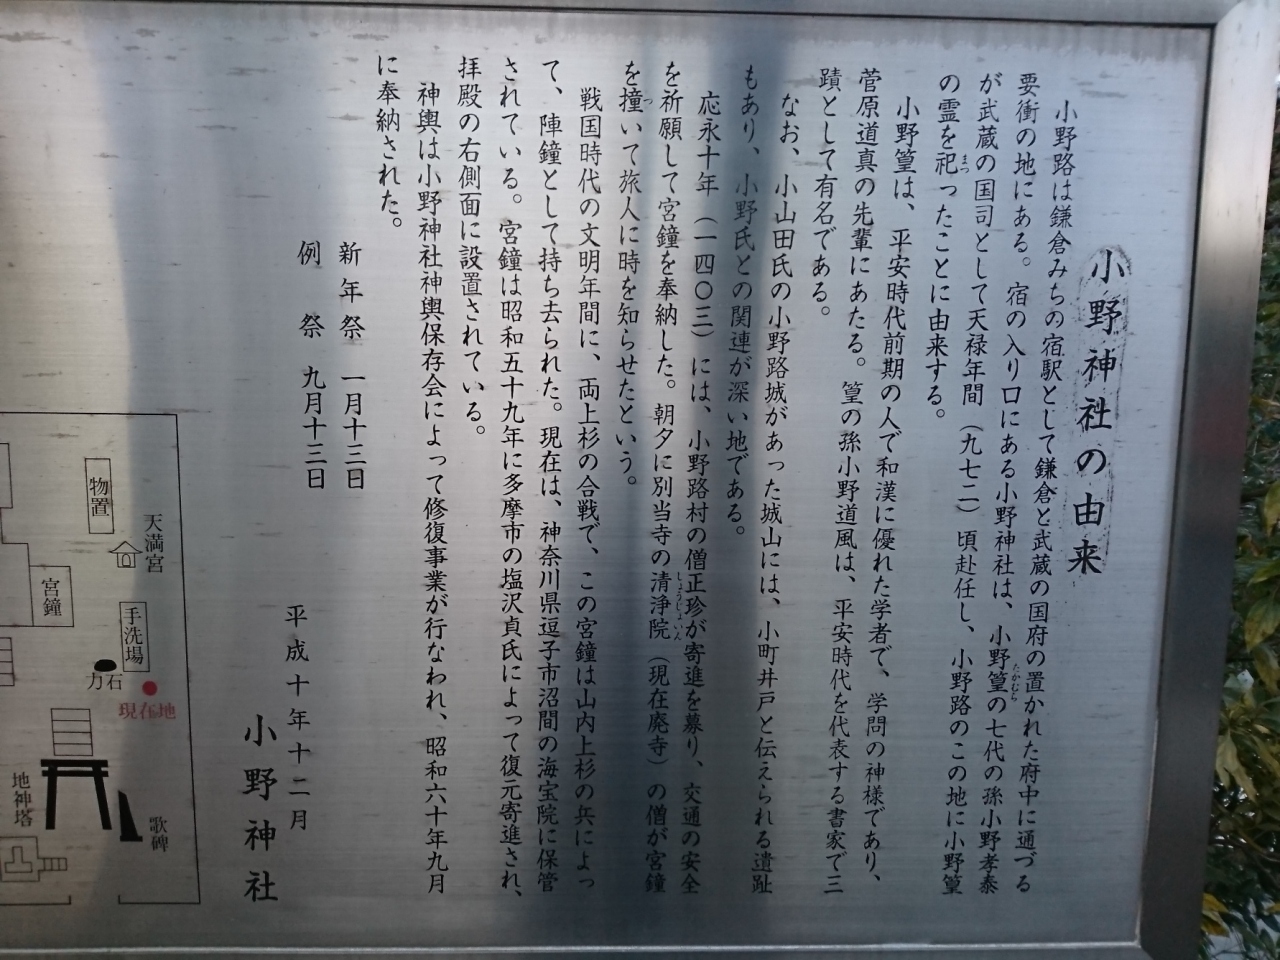 小野神社の由来
小野路は鎌倉みちの宿駅として鎌倉と武蔵の国府の置かれた府中に通づる
要衝の地にある。宿の入り口にある小野神社は、小野篁の七代の孫小野孝泰
たかむら
が武蔵の国司として天禄年間（九七二）頃赴任し、小野路のこの地に小野篁
の霊を祀ったことに由来する。
まつ
小野篁は、平安時代前期の人で和漢に優れた学者で、学問の神様であり、
菅原道真の先輩にあたる。篁の孫小野道風は、平安時代を代表する書家で三
蹟として有名である。
なお、小山田氏の小野路城があった城山には、小町井戸と伝えられる遺趾
もあり、小野氏との関連が深い地である。
応永十年（一四〇三）には、小野路村の僧正珍が寄進を募り、交通の安全
を祈願して宮鐘を奉納した。朝夕に別当寺の清浄院（現在廃寺）の僧が宮鐘
しょうじょいん
を撞いて旅人に時を知らせたという。
つ
戦国時代の文明年間に、両上杉の合戦で、この宮鐘は山内上杉の兵によっ
て、陣鐘として持ち去られた。現在は、神奈川県逗子市沼間の海宝院に保管
されている。宮鐘は昭和五十九年に多摩市の塩沢貞氏によって復元寄進され、
拝殿の右側面に設置されている。
神輿は小野神社神輿保存会によって修復事業が行なわれ、昭和六十年九月
に奉納された。
新年祭 一月十三日
例祭 九月十三日
平成十年十二月
小野神社
天満宮
物置
宮鐘
手洗場
力石
現在地
歌碑
地神塔